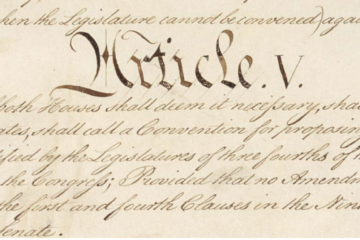 hen the Legislature cannot be convened) agai
Article. V.
both Houses shall deem it necessary, sha
ates, shall call a Convention for proposin
ified by the Legislatures of three fourths of
the Congress; Provided that no Amendm
the first and fourth Clauses in the Nin
enate.